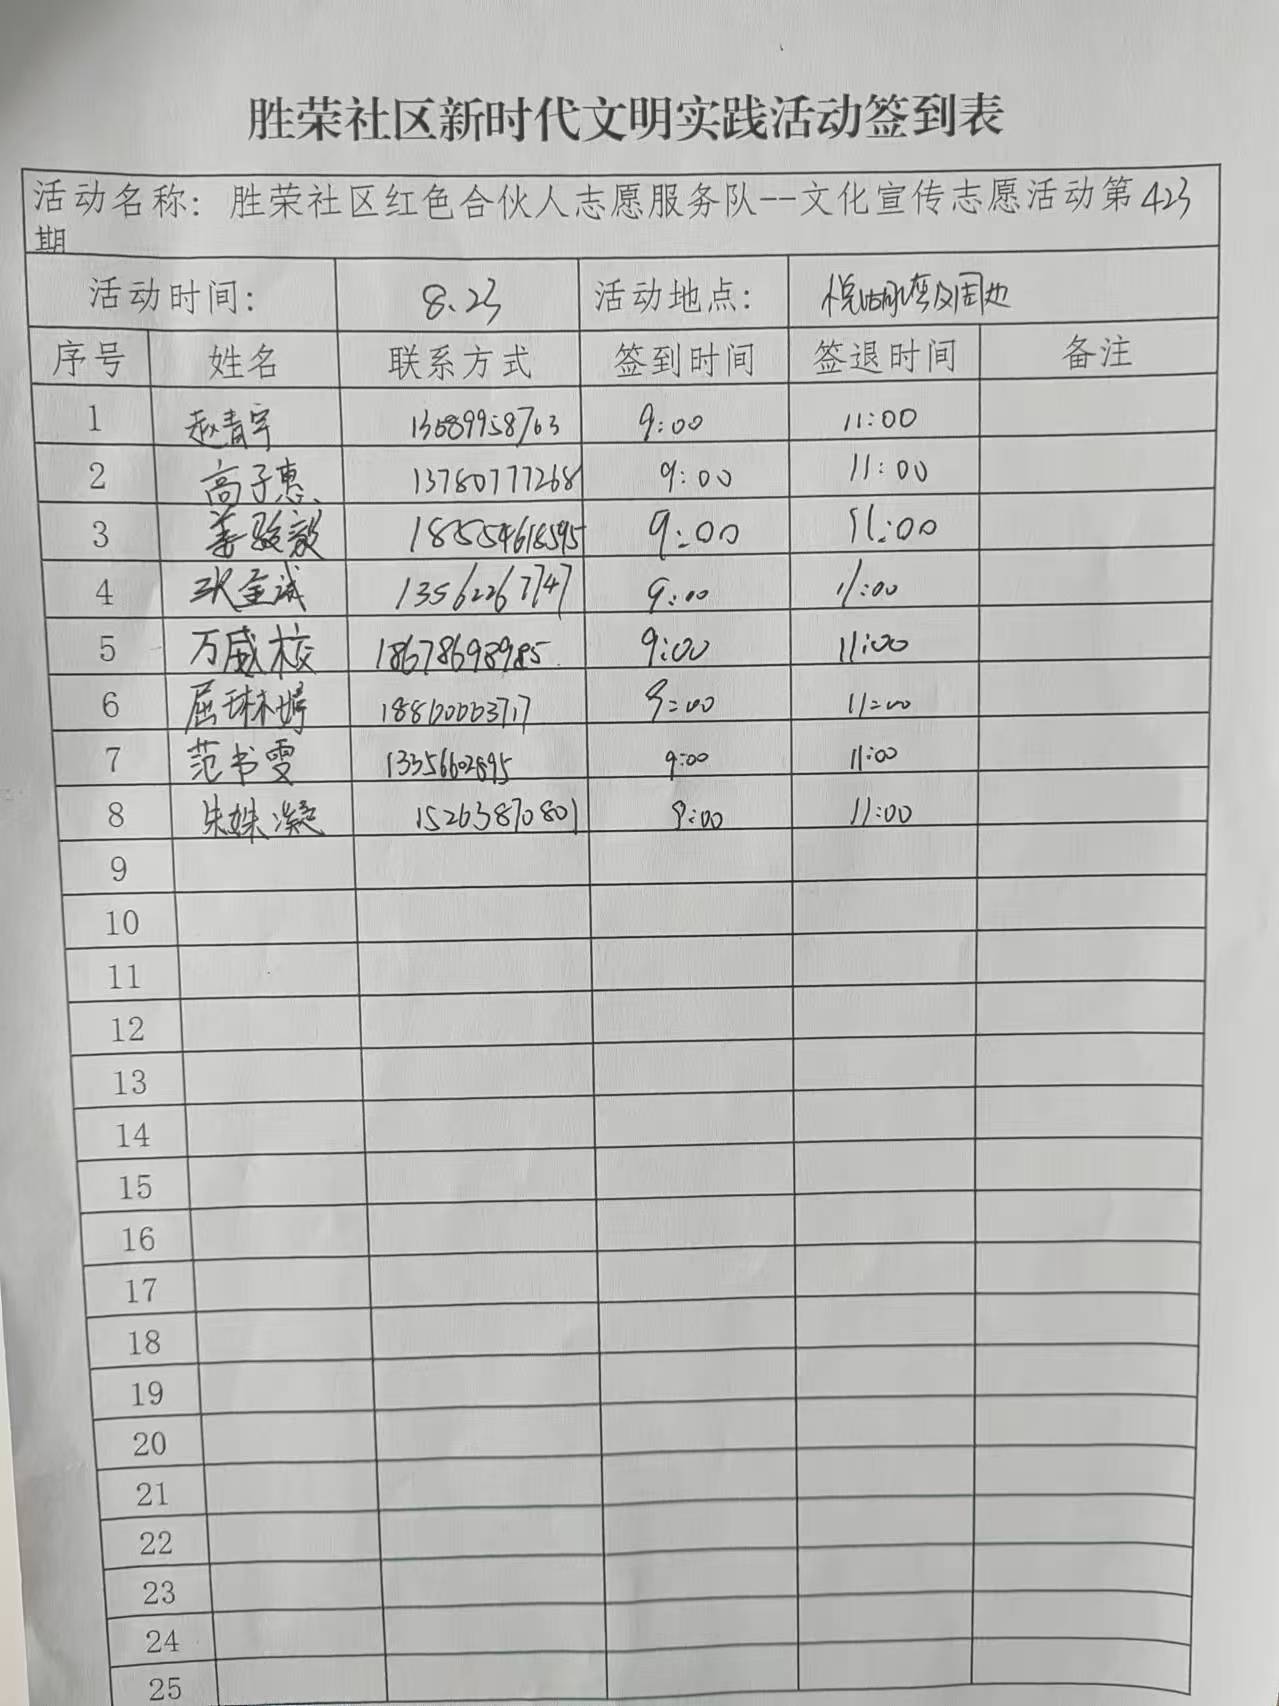 胜荣社区新时代文明实践活动签到表
活动名称：胜荣社区红色合伙人志愿服务队--文化宣传志愿活动第423
期
活动时间： 8.23 活动地点： 及周边
序号 姓名 联系方式 签到时间 签退时间 备注
1 赵青宇 13089958763 9:00 11:00
2 高子惠 13780777268 9:00 11:00
3 姜骏毅 18554618595 9:00 11:00
4 金诚 13562267747 9:00 11:00
5 万威校 18678698985 9:00 11:00
6 屈琳婷 9:00 11:00
7 范书雯 13356602895 9:00 11:00
8 朱姝凝 15263870801 9:00 11:00
9
10
11
12
13
14
15
16
17
18
19
20
21
22
23
24
25